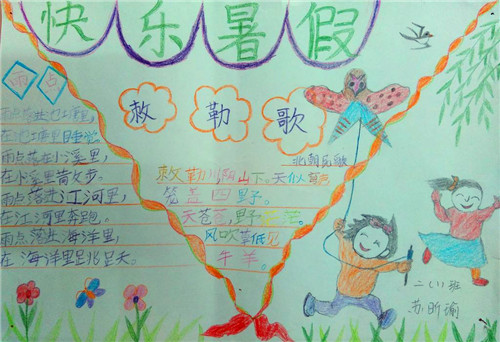 快乐暑假
雨点
敕勒歌
北朝民歌
雨点落进池塘里,
在池塘里睡觉。
雨点落在小溪里,
在小溪里散步。
雨点落进江河里,
在江河里奔跑。
雨点落进海洋里,
在海洋里跳天。
敕勒川,阴山下。天似穹庐,
笼盖四野。
天苍苍,野茫茫。
风吹草低见
牛羊。
二(1)班
苏昕瑜